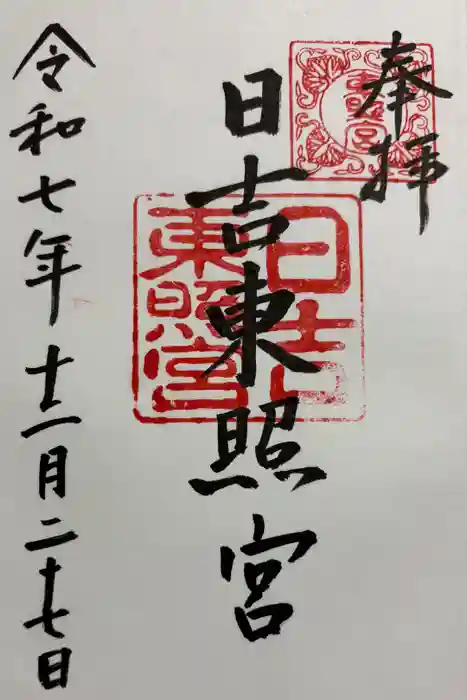 奉拝
東照宮
日吉東照宮
日吉
東照宮
令和七年十二月二十七日